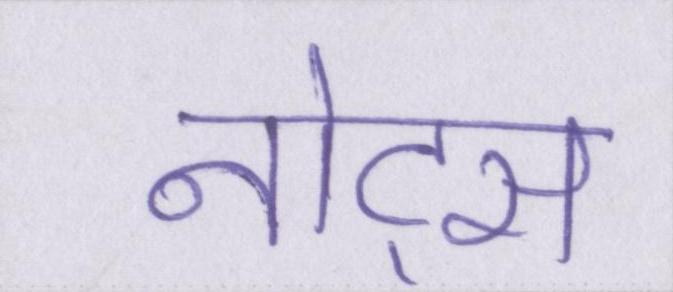 नोट्स